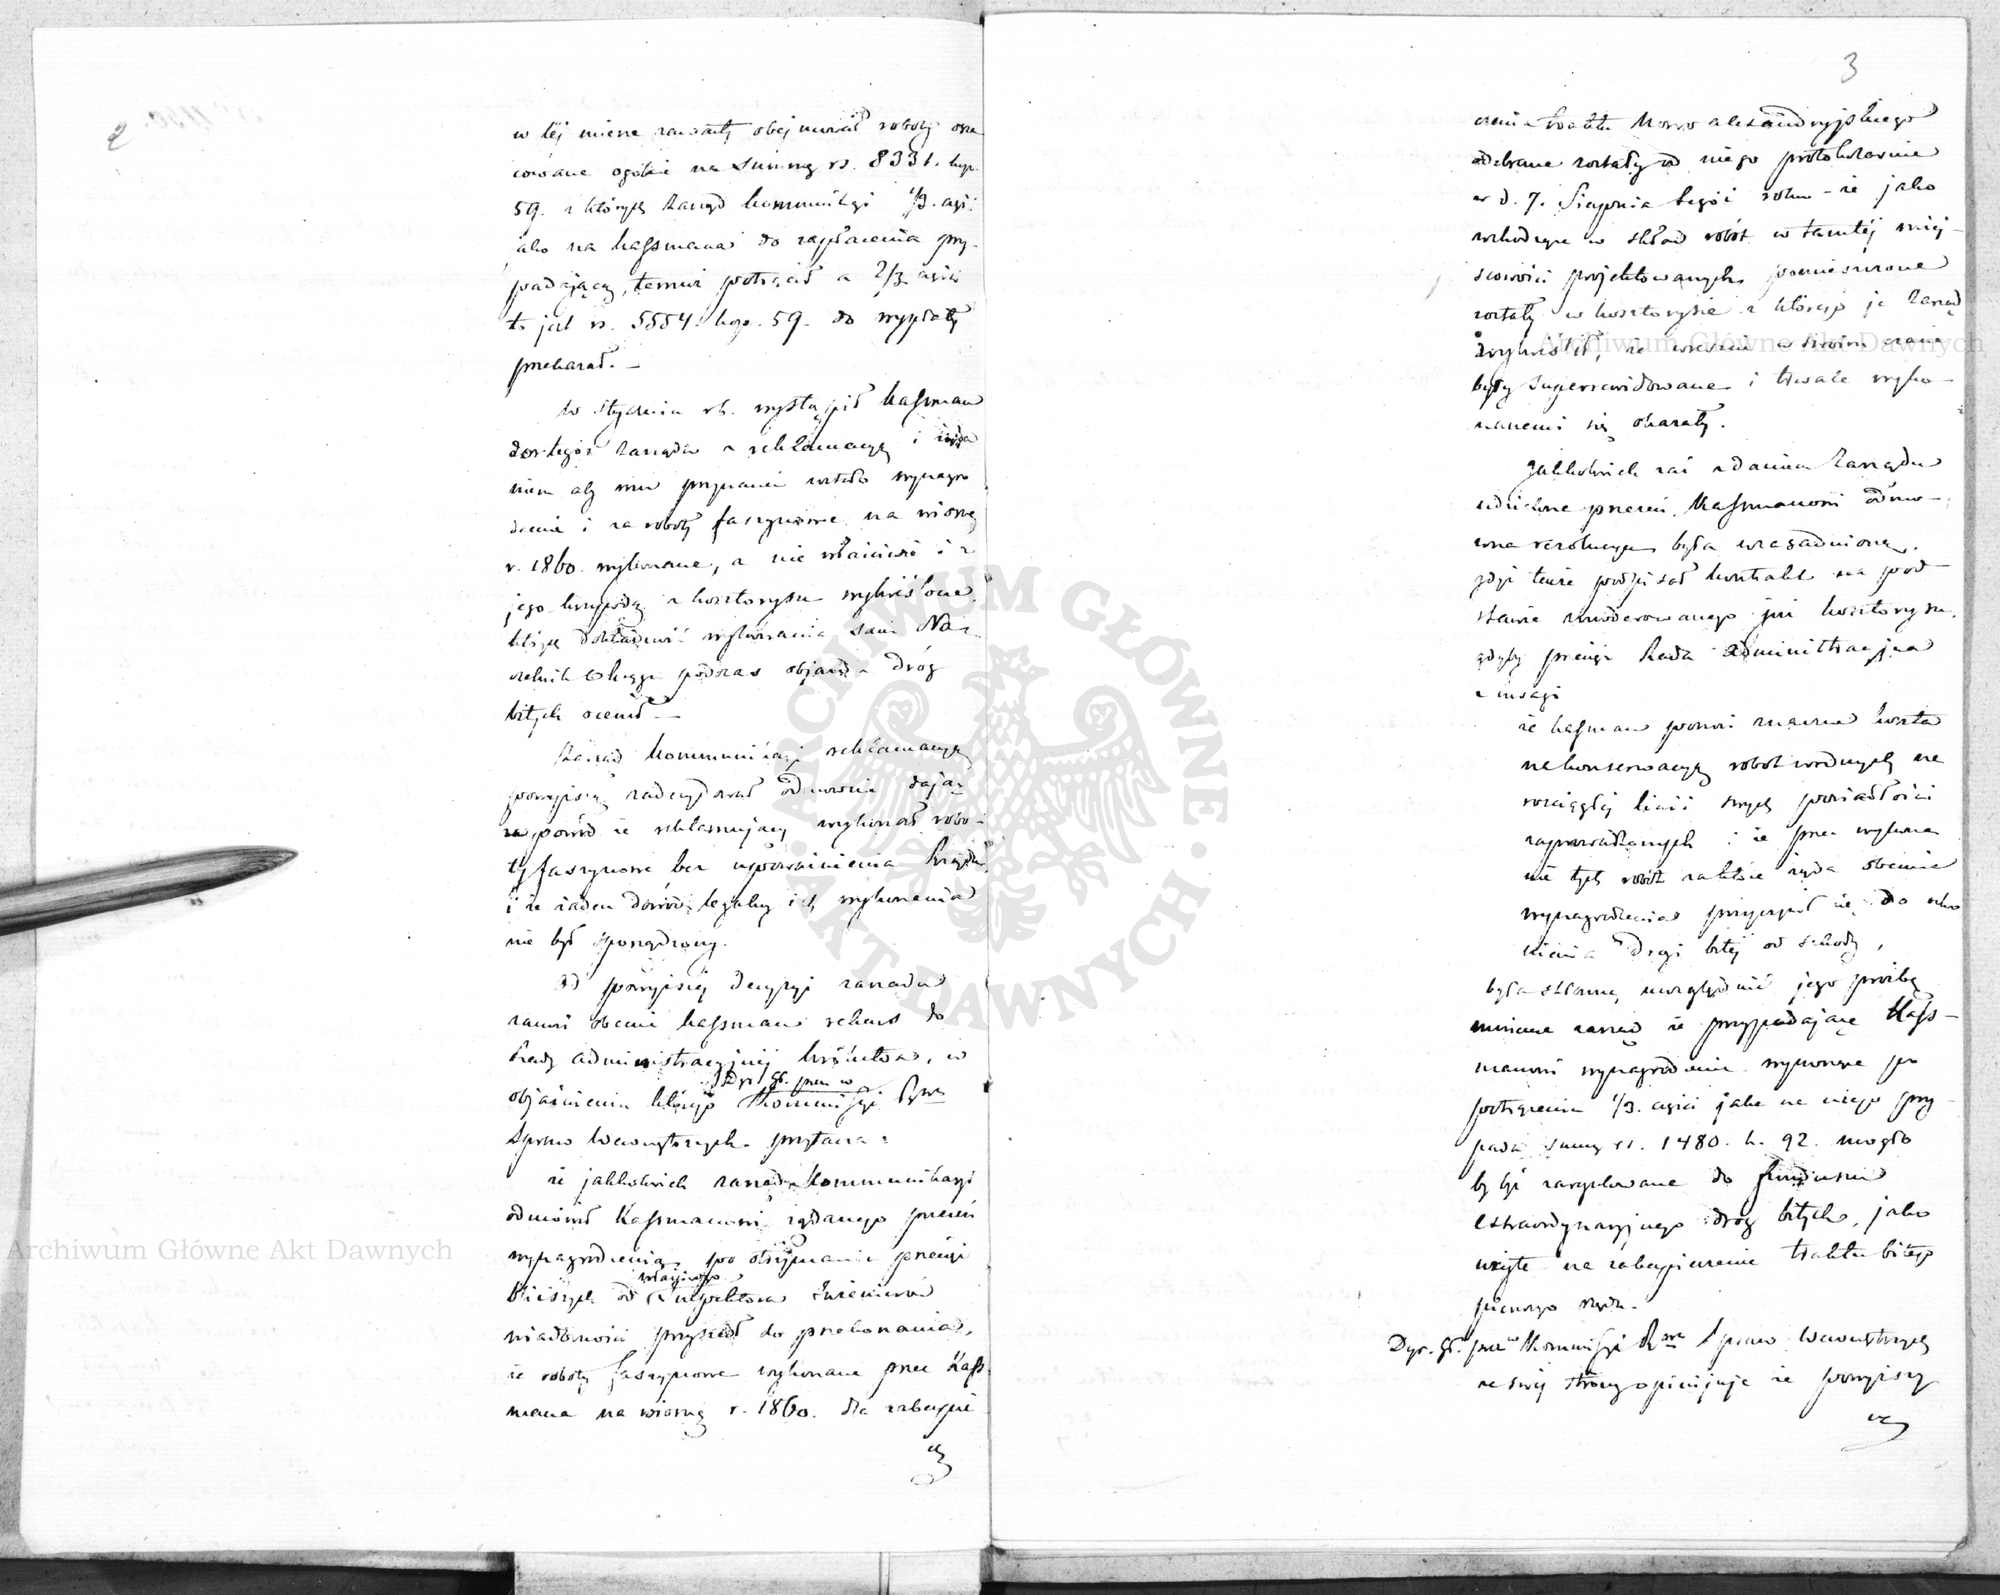 2
w tej mierze zawartej objmował roboty osza
cowane ogółem na summę rs. 8331. kop.
59. z których Zarząd kommunikacyi 1/3. część
jako na Kassmana do zapłacenia przy-
padającą, temuż potrącił a 2/3 części
to jest rs. 5554. kop. 59. do wypłaty
przekazał. —
W styczniu rb. wystąpił Kassman
do tegoż Zarządu z reklamacyą i żąda
niem aby mu przyznane zostało wynagro
dzenie i za roboty faszynowe na wiosnę
r. 1860. wykonane, a nie właściwie i z
jego krzywdą z kosztorysu wykreślone,
których dokładność wykonania sam Na-
czelnik Okręgu podczas objazdu dróg
bitych ocenił —
Zarząd kommunikacyi reklamacyą
powyższą zadecydował odmownie dając
za powód że reklamujący wykonał robo-
ty faszynowe bez upoważnienia Zarządu
i że żaden dowód legalny ich wykonania
nie był sporządzony.
Od powyższej decyzyi zarządu
zanosi obecnie Kassman rekurs do
Rady administracyjnej Królestwa, w
Dyr. Gł. prez. w
objaśnieniu którego Kommissyi Rząwa
Spraw Wewnętrznych przytacza:
że jakkolwiek zarząd Kommunikacyi
odmówił Kassmanowi żądanego przezeń
wynagrodzenia, po otrzymaniu przecież
właściwego
bliższych od Inspektora Inżenierów
wiadomości przyszedł do przekonania,
że roboty faszynowe wykonane przez Kass
mana na wiosnę r. 1860. dla zabezpie
3
czenia traktu Nowo aleksandryjskiego
odebrane zostały od niego protokolarnie
w d. 7. Sierpnia tegoż roku — że jako
wchodzące w skład robót w tamtej miej-
scowości projektowanych, pomieszczone
zostały w kosztorysie z którego je Zarząd
wykreślił, że wreszcie w swoim czasie
były superrewidowane i trwale wyko-
nanemi się okazały.
Jakkolwiek zaś zdaniem Zarządu
udzielona przezeń Kassmanowi odmo-
wna rezolucya była uzasadnioną,
gdyż tenże podpisał kontrakt na pod-
stawie zmoderowanego już kosztorysu,
gdyby przecież Rada administracyjna
z uwagi
że Kassman ponosi znaczne koszta
na konserwacyą robót wodnych na
rozciągłej linii swych posiadłości
zaprowadzonych i że przez wykona
nie tych robót za które żąda obecnie
wynagrodzenia przyczynił się do ochro
nienia drogi bitej od szkody,
była skłonną uwzględnić jego prośbę
mniema zarząd że przypadające Kass-
manowi wynagrodzenie wynoszące po
potrąceniu 1/3. części jaka na niego przy-
pada summę rs. 1480. k. 92. mogło
by być zasygnowane do funduszu
extraordynaryjnego dróg bitych, jako
użyte na zabezpieczenie traktu bitego
pierwszego rzędu.
Dyr. Gł. prez w Kommissyi Rząwej Spraw Wewnętrznych
ze swej strony opiniuje że powyższy